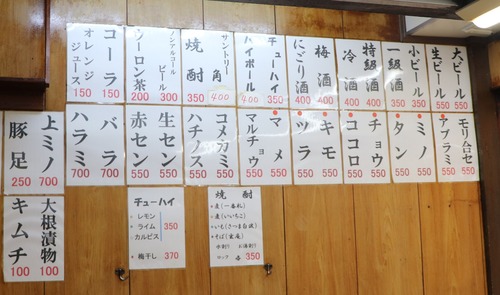 大ビール 550
生ビール 550
小ビール 350
一級酒 350
特級酒 400
冷酒 400
梅酒 400
にごり酒 400
チューハイ 350
ハイボール 400
サントリー角 400
焼酎 350
ノンアルコールビール 300
ウーロン茶 200
コーラ 150
オレンジジュース 150
モリ合セ 550
アブラミ 550
ミノ 550
タン 550
チョウ 550
ココロ 550
キモ 550
ツラ 550
マメ 550
マルチョウ 550
コメカミ 550
ハチノス 550
生セン 550
赤セン 550
バラ 700
ハラミ 700
上ミノ 700
豚足 250
大根漬物 100
キムチ 100
チューハイ
・レモン
・ライム 350
・カルピス
・梅干し 370
焼酎
・麦(一番札)
・麦(いいちこ)
・いも(さつま白波)
・そば(雲海)
水割り お湯割り
ロック 各350